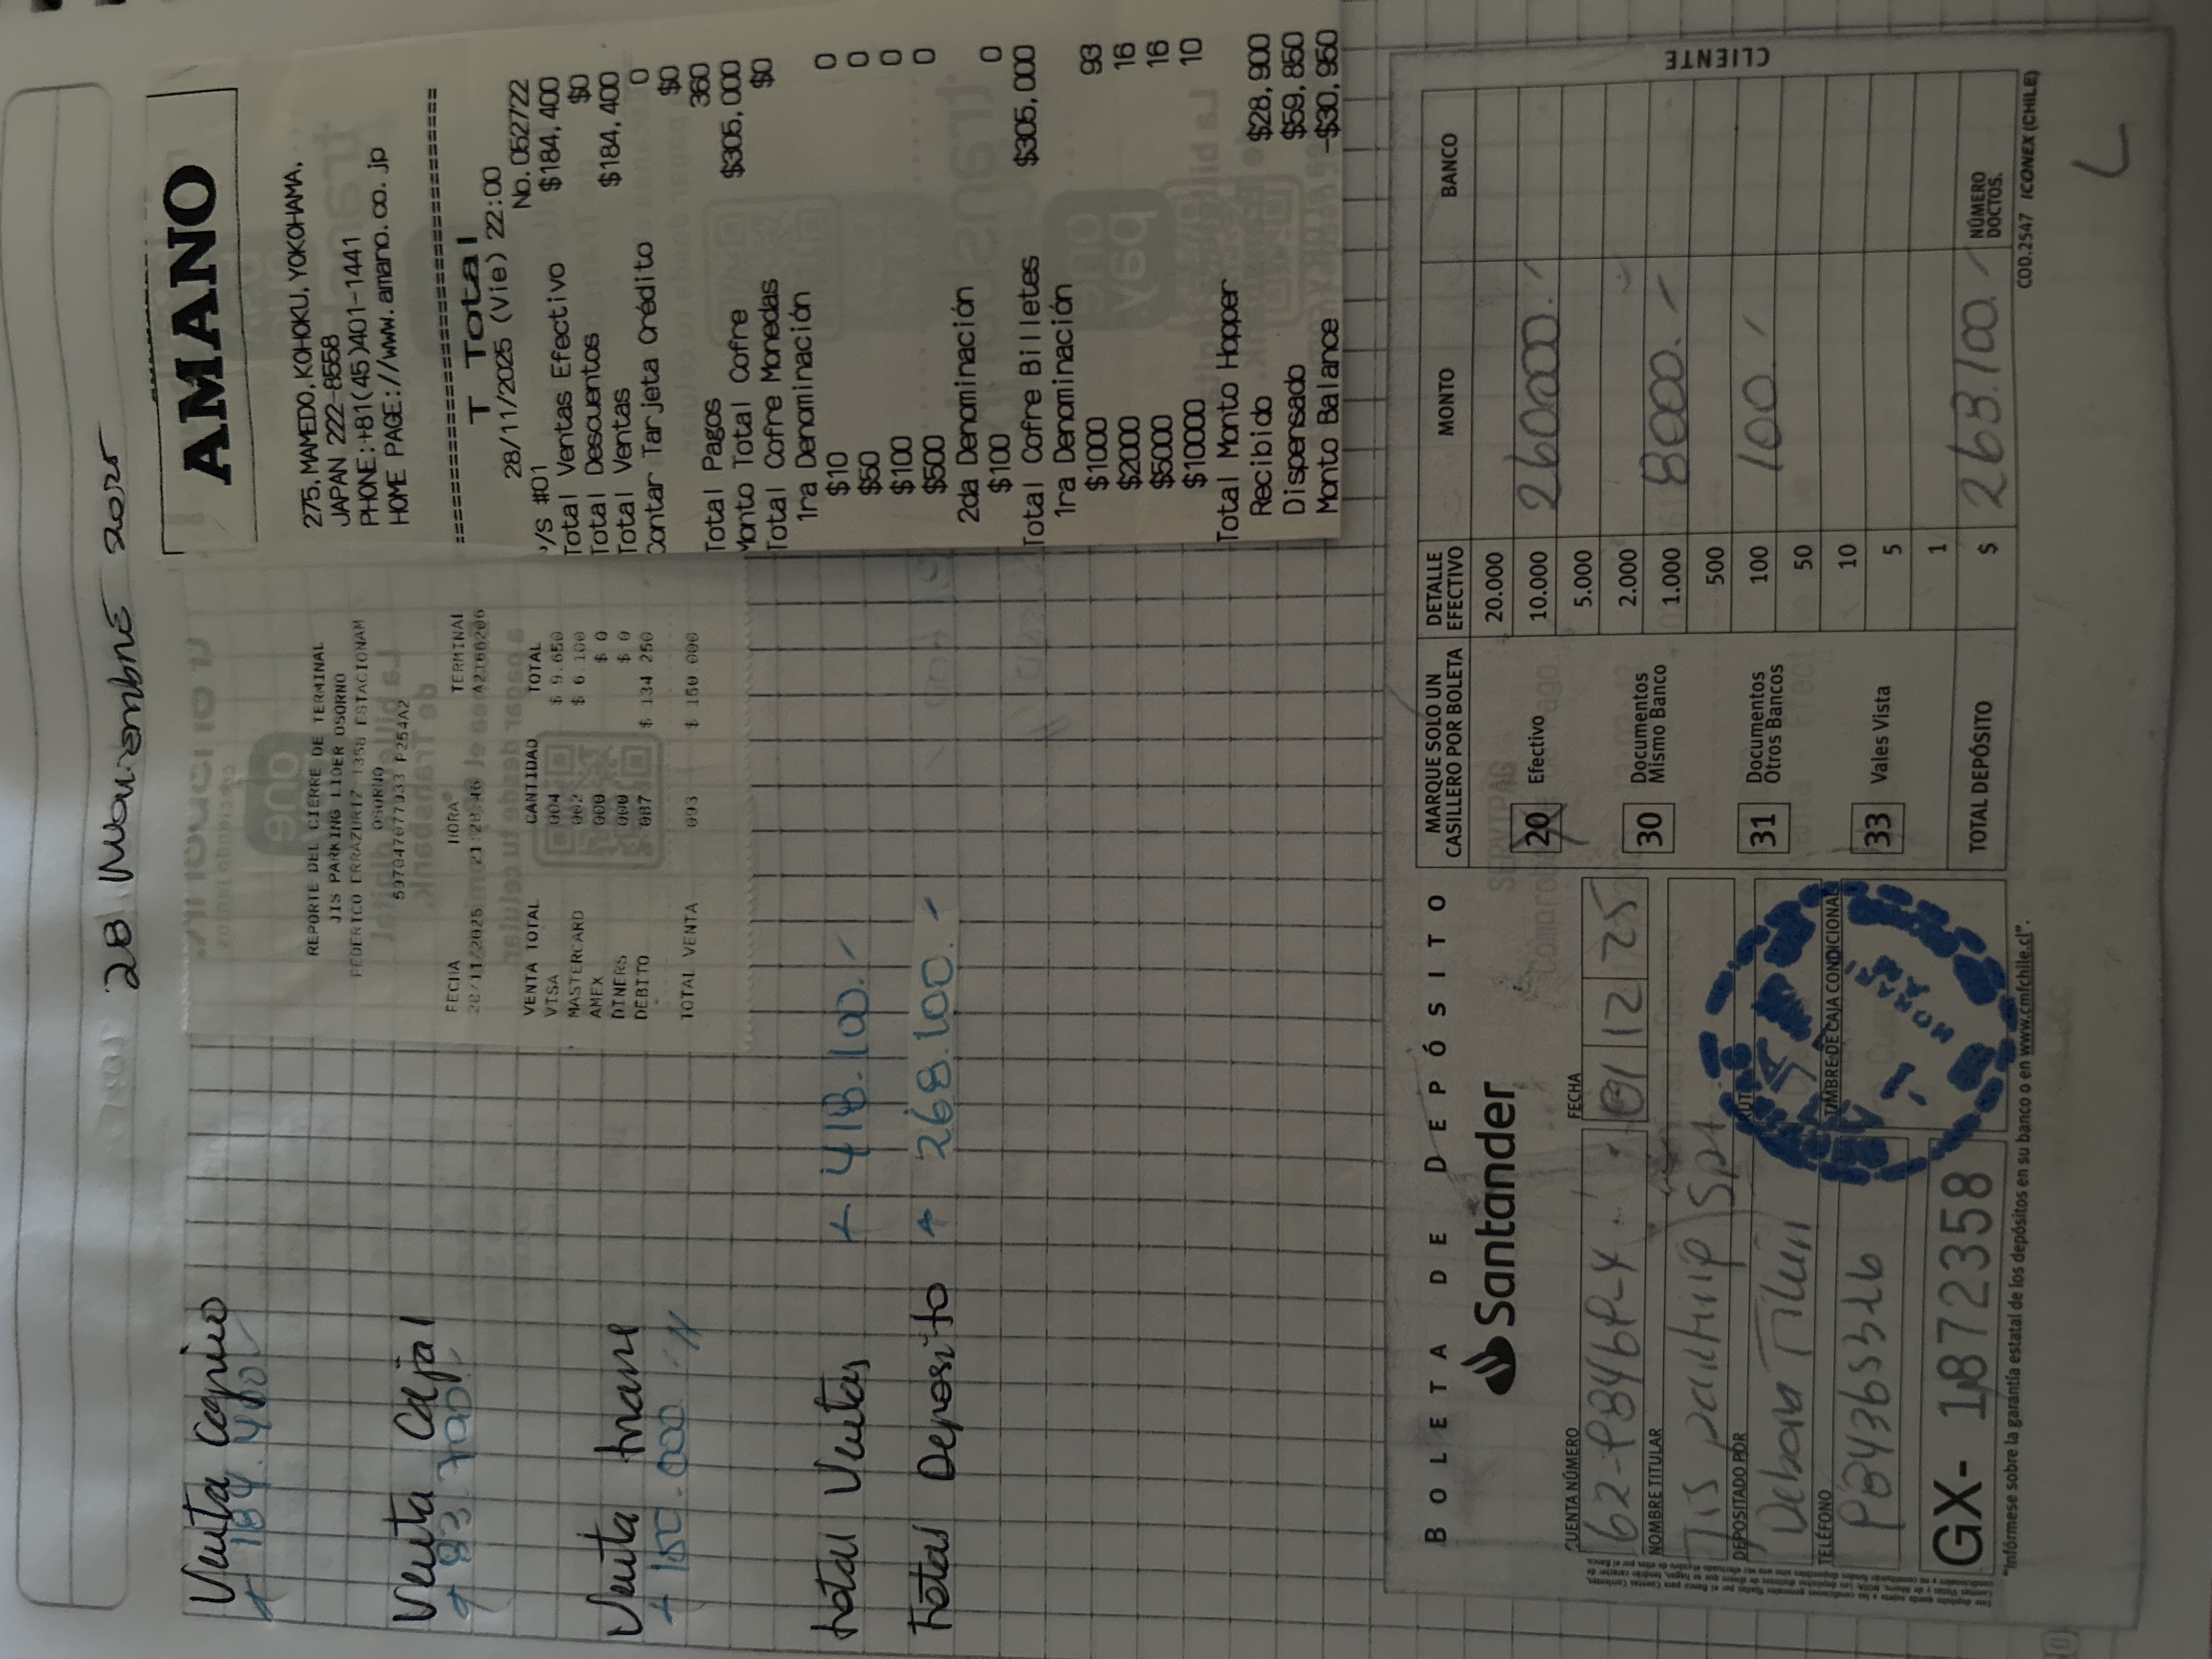 28 Noviembre 2025
Venta Cajero
184.400
Venta Caja 1
83.700
Venta trans
150.000
total Ventas 418.100.-
total Deposito 268.100.-
REPORTE DEL CIERRE DE TERMINAL
JIS PARKING LIDER OSORNO
FEDERICO ERRAZURIZ 1358 ESTACIONAM
OSORNO
597047677333 P254A2
FECHA HORA TERMINAL
28/11/2025 21:28:46 A2166206
VENTA TOTAL CANTIDAD TOTAL
VISA 004 $ 9.650
MASTERCARD 002 $ 6.100
AMEX 000 $ 0
DINERS 000 $ 0
DEBITO 087 $ 134.250
TOTAL VENTA 093 $ 150.000
AMANO
275, MAMEDO, KOHOKU, YOKOHAMA,
JAPAN 222-8558
PHONE:+81(45)401-1441
HOME PAGE://www.amano.co.jp
T Total
28/11/2025 (Vie) 22:00
/S #01 No.052722
Total Ventas Efectivo $184,400
Total Descuentos $0
Total Ventas $184,400
Contar Tarjeta Crédito 0
$0
Total Pagos 360
Monto Total Cofre $305,000
Total Cofre Monedas $0
1ra Denominación
$10 0
$50 0
$100 0
$500 0
2da Denominación
$100 0
Total Cofre Billetes $305,000
1ra Denominación
$1000 93
$2000 16
$5000 16
$10000 10
Total Monto Hopper
Recibido $28,900
Dispensado $59,850
Monto Balance -$30,950
BOLETA DE DEPÓSITO
Santander
CUENTA NÚMERO FECHA
01 12 25
NOMBRE TITULAR
Jis parking Spa
DEPOSITADO POR RUT
Debora
TELÉFONO TIMBRE DE CAJA CONDICIONAL
GX- 1872358
"Infórmese sobre la garantía estatal de los depósitos en su banco o en www.cmfchile.cl".
MARQUE SOLO UN
CASILLERO POR BOLETA
20 Efectivo
30 Documentos
Mismo Banco
31 Documentos
Otros Bancos
33 Vales Vista
TOTAL DEPÓSITO
DETALLE
EFECTIVO MONTO BANCO
20.000
10.000 260000.-
5.000
2.000
1.000 8000.-
500
100 100.-
50
10
5
1
$ 268.100.- NÚMERO
DOCTOS.
CLIENTE
COD.2547 ICONEX (CHILE)